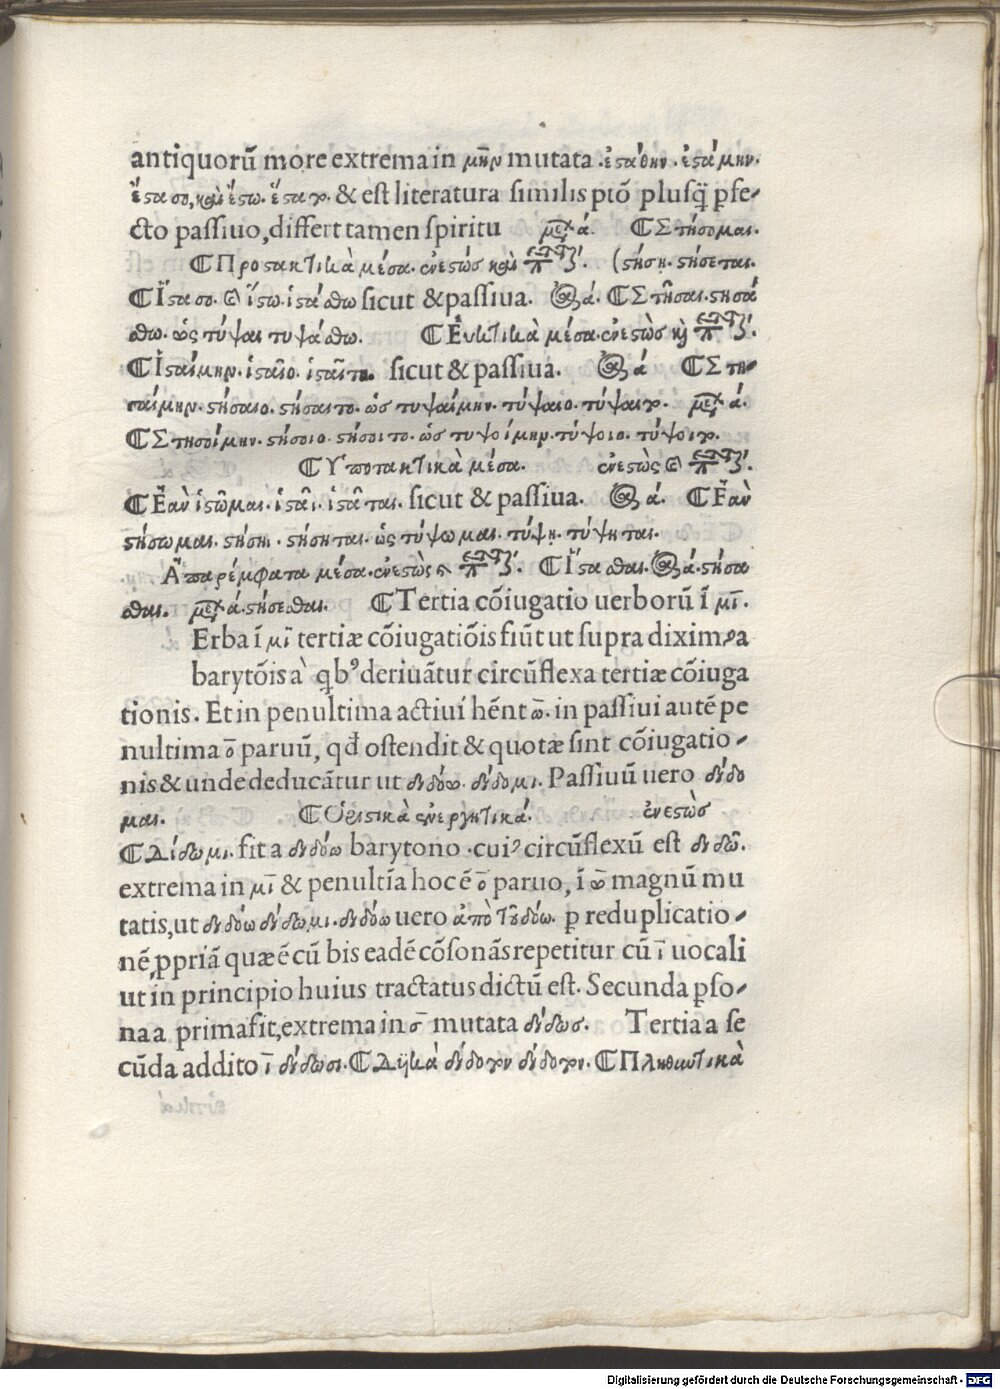 antiquorū more extrema in μην mutata ·ἐϛάθην· ἐϛάμην·
ἵϛασο, καὶ ἵϛω· ἵϛατο· & est literatura similis ptō plusq̃ pfe⸗
cto passiuo, differt tamen spiritu ά. ℂΣτήσομαι.
ℂΠροϛακτικὰ μέσα· ἐνεϛὼς καὶ (ϛήσῃ· ϛήσεται.
ℂἽϛασο· ἵϛω· ἱϛάσθω sicut & passiua. ά. ℂΣτῆσαι· ϛησά
σθω· ὡς τύψαι τυψάσθω. ℂΕὐκτικὰ μέσα· ἐνεϛὼς κ̀
ℂἹϛαίμην· ἱϛαῖο· ἱϛαῖτο. sicut & passiua. ά ℂΣτη⸗
σαίμην· ϛήσαιο· ϛήσαιτο· ὡς τυψαίμην· τύψαιο· τύψαιτο. ά.
ℂΣτησοίμην· ϛήσοιο· ϛήσοιτο· ὡς τυψοίμην· τύψοιο· τύψοιτο.
ℂὙποτακτικὰ μέσα. ἐνεϛὼς
ℂἘὰν ἱϛῶμαι· ἱϛᾶι· ἱϛᾶται· sicut & passiua. ά. ℂἘὰν
ϛήσωμαι· ϛήσηι· ϛήσηται· ὡς τύψωμαι· τύψῃ· τύψηται.
Ἀπαρέμφατα μέσα· ἐνεϛὼς ℂἽϛασθαι· ά· ϛήσα
σθαι. ά· ϛήσεσθαι. ℂTertia cōiugatio uerborū ī μῑ.
Erba ī μῑ tertiæ cōiugatiōis fiūt ut supra diximꝰ a
barytōis à qbꝰ deriuātur circūflexa tertiæ cōiuga
tionis. Et in penultima actiui hēnt ω̄· in passiui autē pe
nultima ō paruū, qđ ostendit & quotæ sint cōiugatio⸗
nis & unde deducātur ut διδόω· δίδομι. Passiuū uero δίδο
μαι. ℂὉριϛικὰ ἐνεργητικά. ἐνεϛὼς
ℂΔίδωμι· fit a διδόω barytono ·cuiꝰ circūflexū est διδῶ.
extrema in μῑ & penultīa hoc ē ō paruo, ī ω̄ magnū mu
tatis, ut διδόω δίδωμι· διδόω uero ἀπὸ τοῦ δόω. p reduplicatio⸗
nē ,ppriā quæ ē cū bis eadē cōsonās repetitur cū ῑ uocali
ut in principio huius tractatus dictū est. Secunda pso⸗
na a prima fit, extrema in σ̄ mutata δίδως. Tertia a se
cūda addito ῑ δίδωσι· ℂΔυϊκὰ δίδοτον δίδοτον· ℂΠληθυντικὰ